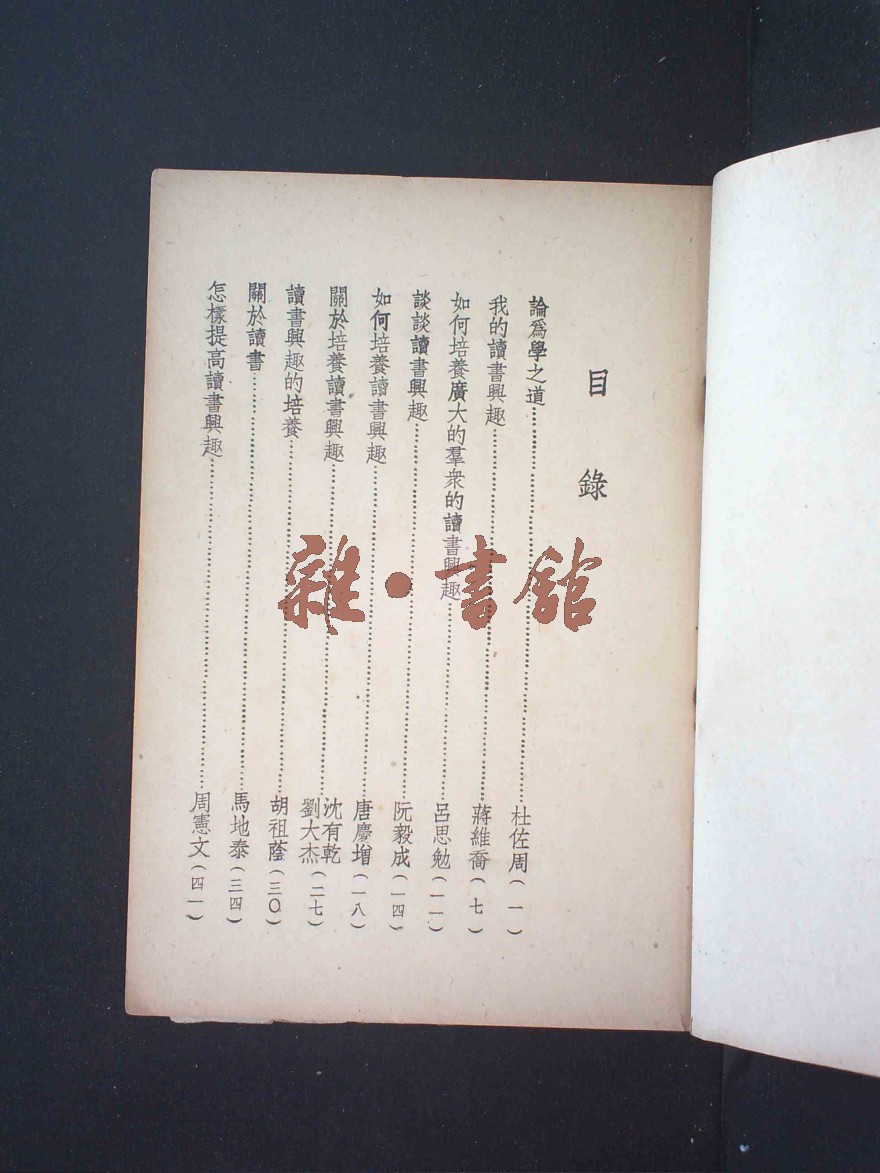 目錄
論爲學之道……杜佐周(一)
我的讀書興趣……蔣維喬(七)
如何培養廣大的羣衆的讀書興趣……呂思勉(一一)
談談讀書興趣……阮毅成(一四)
如何培養讀書興趣……唐慶增(一八)
關於培養讀書興趣……沈有乾
劉大杰(二七)
讀書興趣的培養……胡祖蔭(三〇)
關於讀書……馬地泰(三四)
怎樣提高讀書興趣……周憲文(四一)
雜·書館